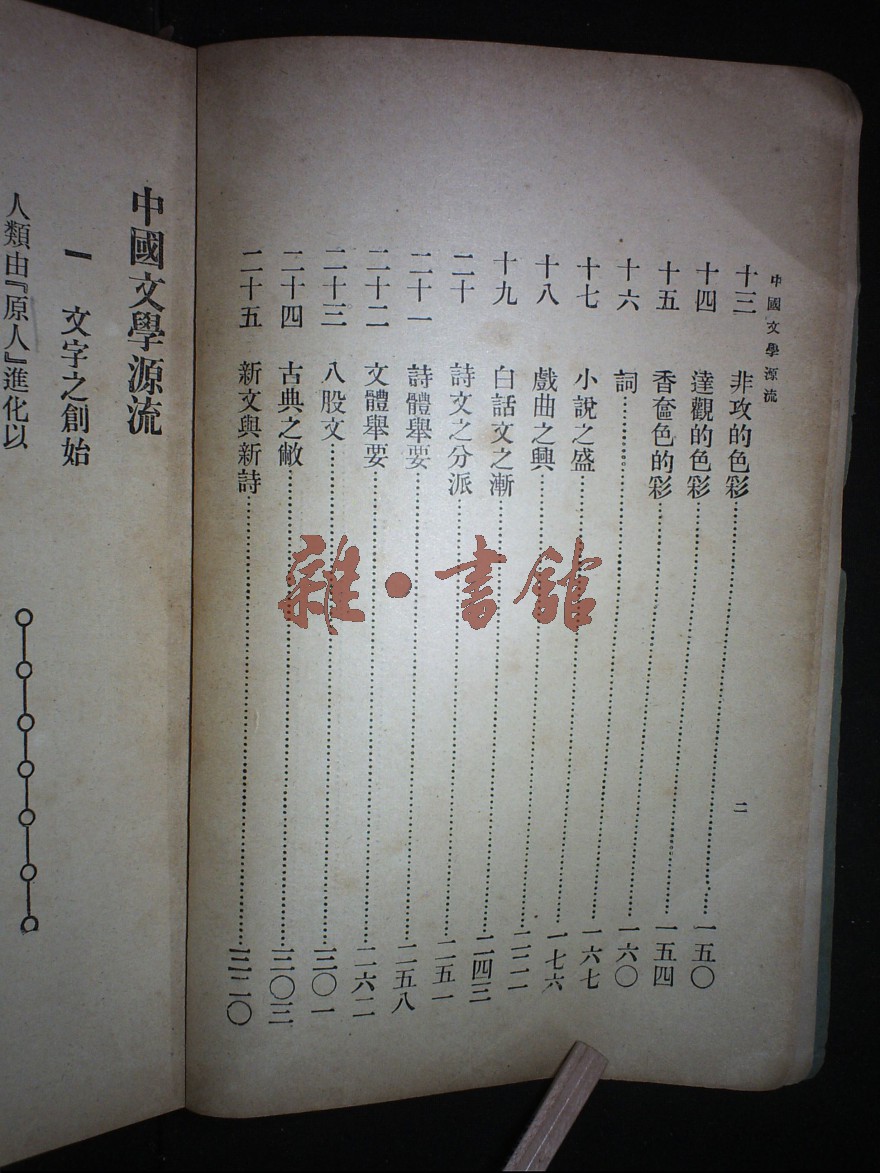 中國文學源流
十三 非攻的色彩……一五〇
十四 達觀的色彩……一五四
十五 香奩色的彩……一六〇
十六 詞……一六七
十七 小說之盛……一七六
十八 戲曲之興……
十九 白話文之漸……二四三
二十 詩文之分派……二五一
二十一 詩體舉要……二五八
二十二 文體舉要……二六二
二十三 八股文……三〇一
二十四 古典之敝……三〇三
二十五 新文與新詩……三二〇
二
雜·書館
中國文學源流
一 文字之創始
人類由『原人』進化以